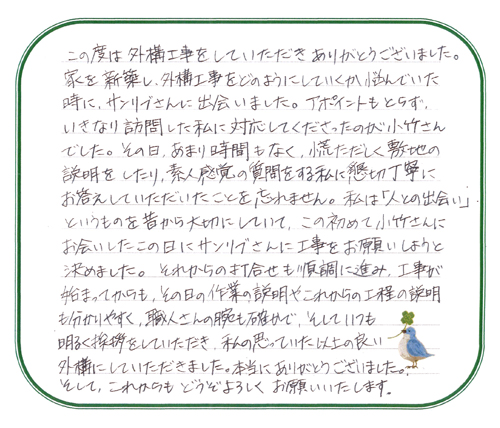 この度は外構工事をしていただきありがとうございました。
家を新築し、外構工事をどのようにしていくか悩んでいた
時に、サンリブさんに出会いました。アポイントもとらず、
いきなり訪問した私に対応してくださったのが小竹さん
でした。その日、あまり時間もなく、慌ただしく敷地の
説明をしたり、素人感覚の質問をする私に懇切丁寧に
お答えしていただいたことを忘れません。私は「人との出会い」
というものを昔から大切にしていて、この初めて小竹さんに
お会いしたこの日にサンリブさんに工事をお願いしようと
決めました。それからの打合せも順調に進み、工事が
始まってからも、その日の作業の説明やこれからの工程の説明
も分かりやすく、職人さんの腕も確かで、そしていつも
明るく挨拶をしていただき、私の思っていた以上の良い
外構にしていただきました。本当にありがとうございました。
そして、これからもどうぞよろしくお願いいたします。